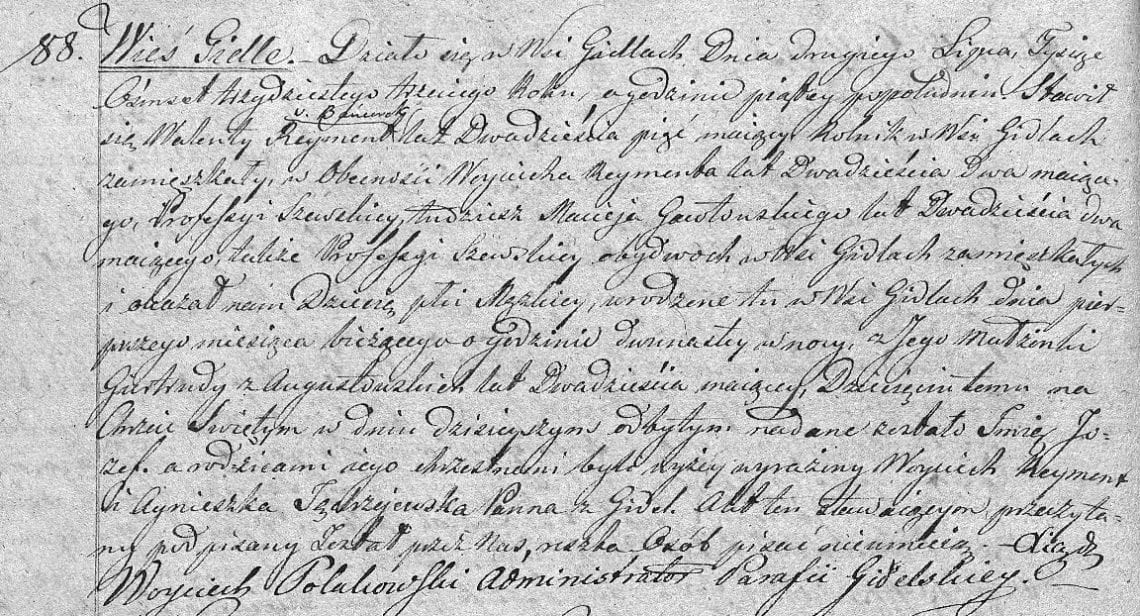 88. Wieś Gidle. - Działo się w Wsi Gidlach Dnia drugiego Lipca, Tysiąc
Ośmset trzydziestego trzeciego Roku, o godzinie piątey popołudniu. Stawił
v. Baniewski
się Walenty Reyment lat Dwadzieścia pięć maiący Rolnik w Wsi Gidlach
zamięszkały, w Obecności Woyciecha Reymenta lat Dwadzieścia Dwa maiące-
go, Professyi Szewskiey, tudzież Macieja Gawłowskiego lat Dwadzieścia dwa
maiącego, także Professyi Szewskiey obydwoch w Wsi Gidlach zamięszkałych
i okazał nam Dziecię płci Męzkiey, urodzone tu w Wsi Gidlach dnia pier-
wszego miesiąca bieżącego o godzinie dwunastey w nocy, z Jego Małżonki
Giertrudy z Augustowskich lat Dwadzieścia maiącey, Dziecięciu temu na
Chrzcie Świętym w dniu dzisieyszym odbytym nadane zostało Imię Jó-
zef. a rodzicami iego chrzestnemi byli wyżey wyrażony Woyciech Reyment
i Agnieszka Jędrzejewska Panna z Gidel. Akt ten stawaiącym przeczyta-
ny podpisany Został przez Nas, reszta Osób pisać nieumieią. - Xiądz
Woyciech Polakowski Administrator Parafii Gidelskiey.